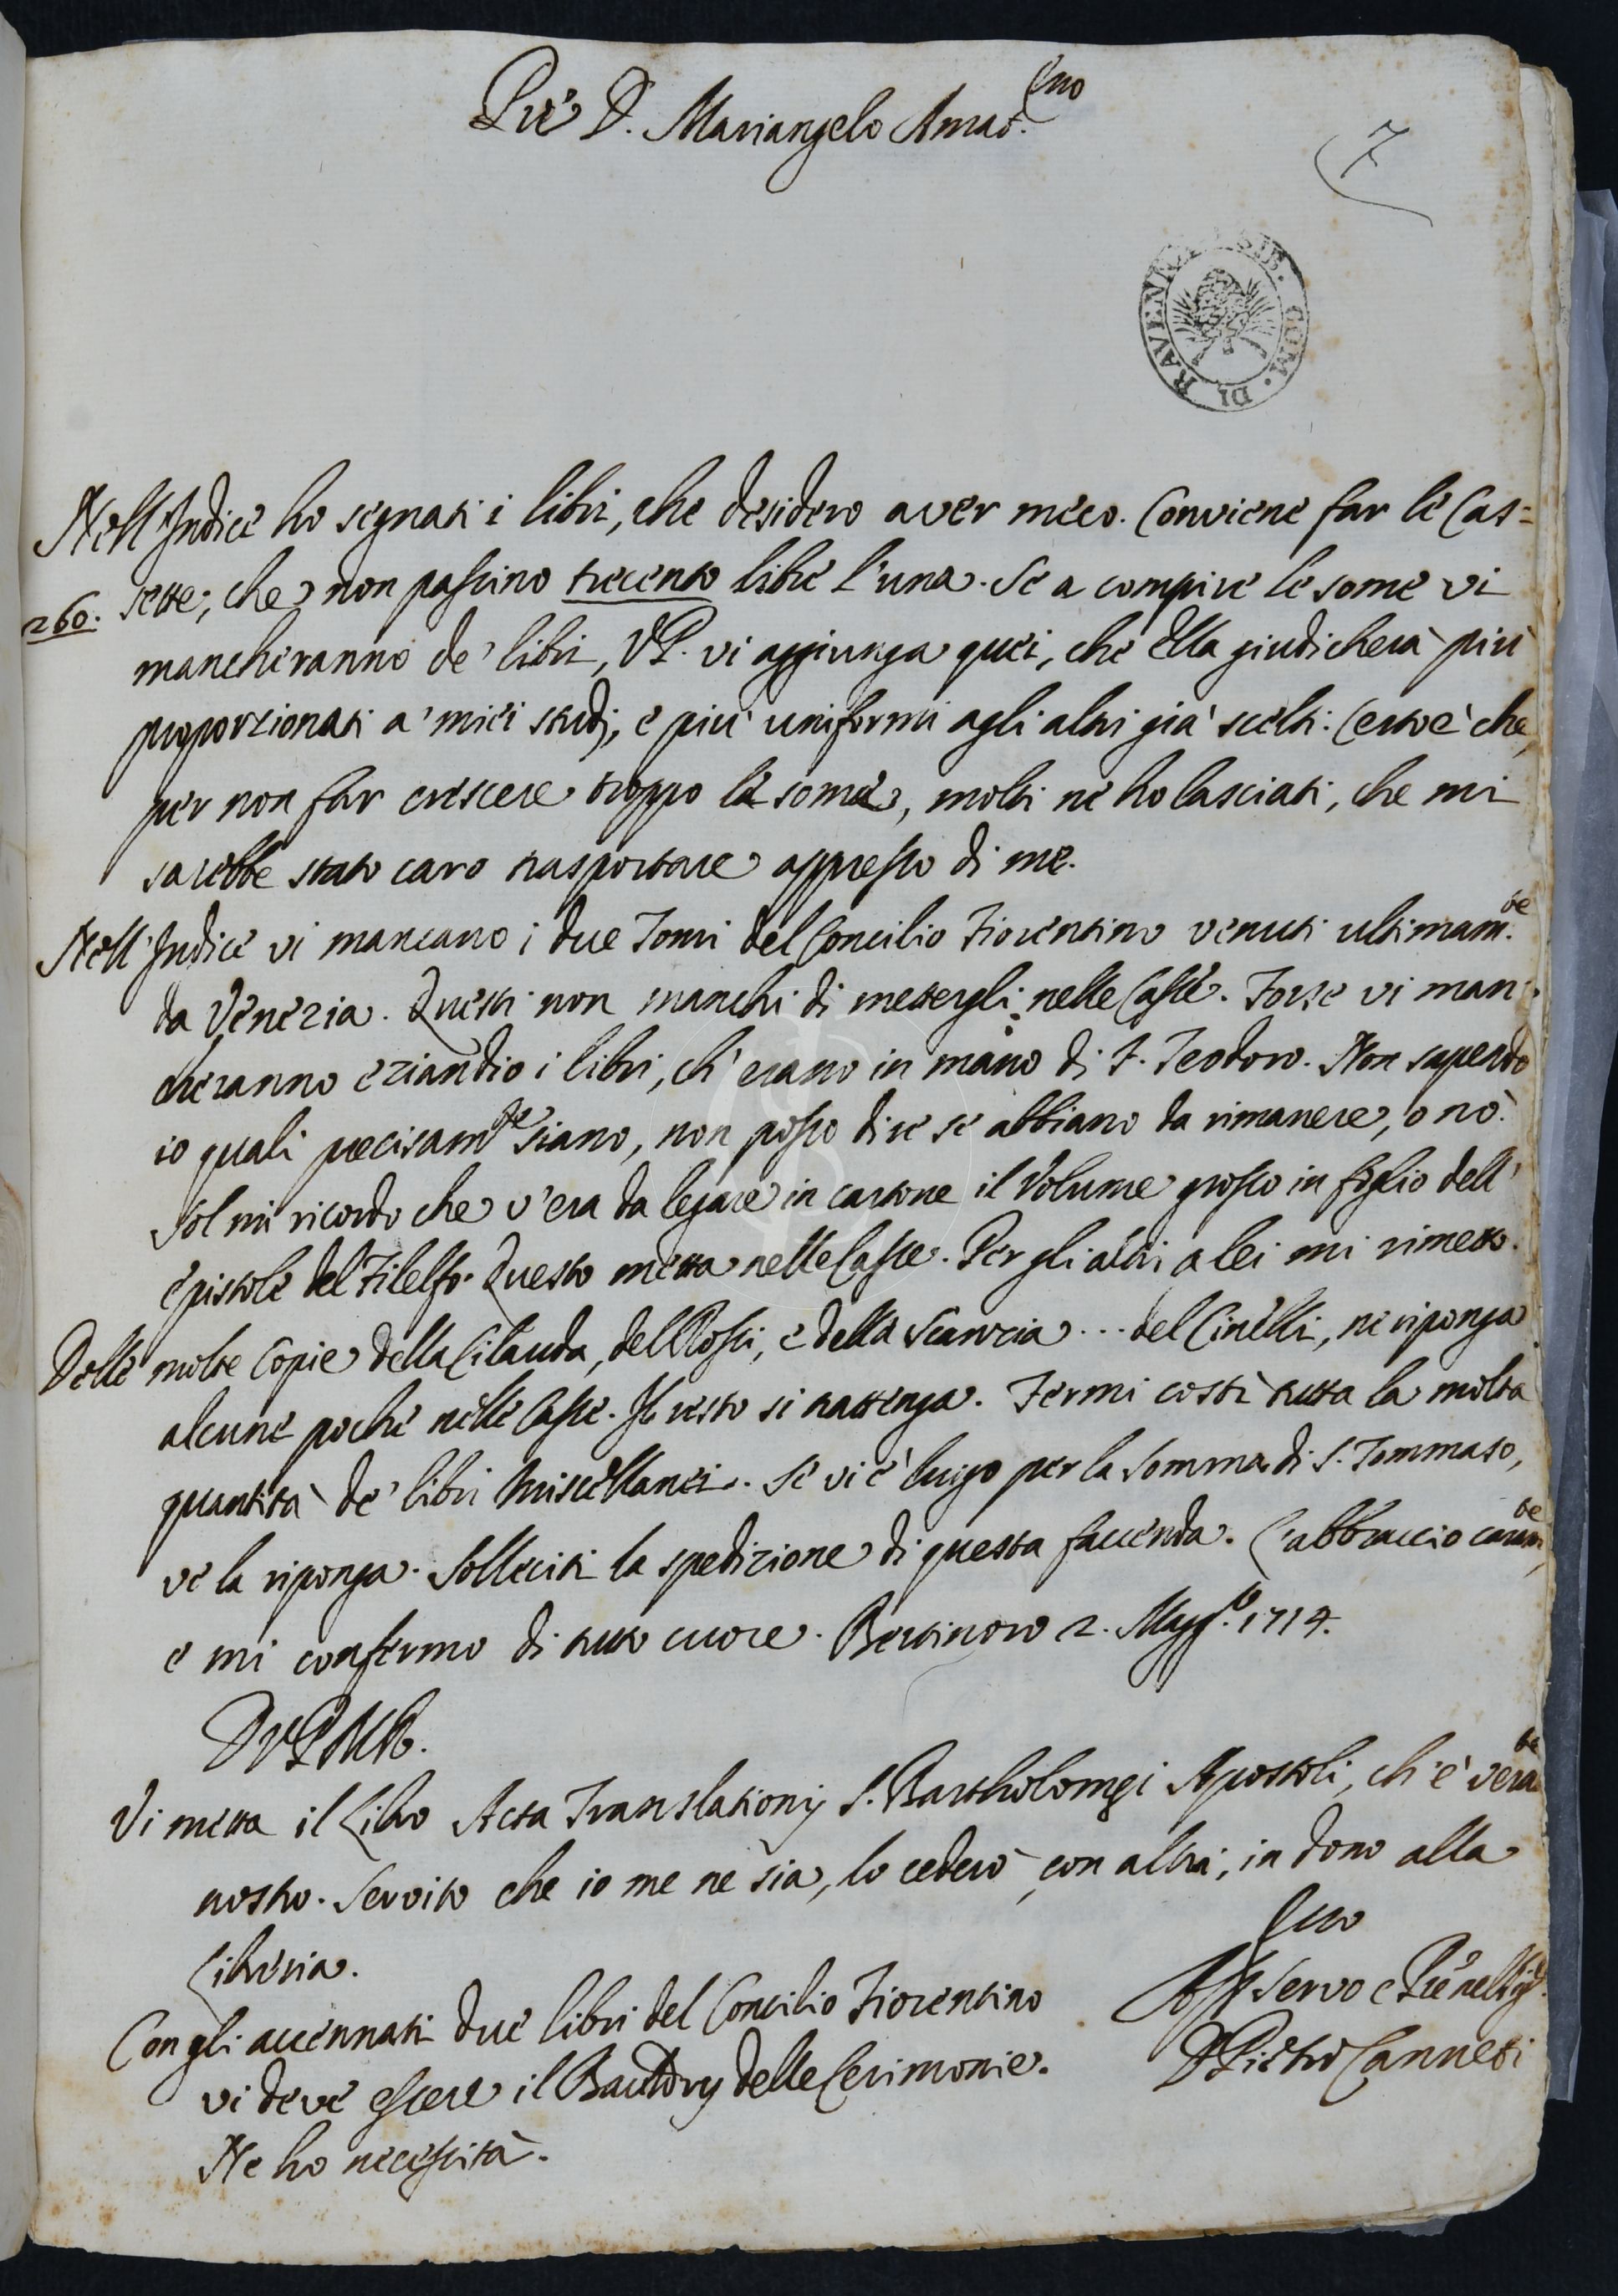 P̃re D. Mariangelo Amat.mo
7
BIB. COM. DI RAVENNA
Nell'Indice ho segnati i libri, che desidero aver meco. Conviene far le Cas=
sette, che non passino trecento libre l'una. Se a compire le some vi
260.
mancheranno de' libri, VP. vi aggiunga quei, che ella giudicherà più
proporzionati a' miei studj, e più uniformi agli altri già scelti: Certo è che,
per non far crescere troppo le some, molti ne ho lasciati, che mi
sarebbe stato caro trasportare appresso di me.
Nell'Indice vi mancano i due Tomi del Concilio Fiorentino venuti ultimam.te
da Venezia. Questi non manchi di mettergli nelle Casse. Forse vi man-
cheranno eziandio i libri, ch'erano in mano di F. Teodoro. Non sapendo
io quali precisam.te siano, non posso dire se abbiano da rimanere, o nò.
Sol mi ricordo che v'era da legare in cartone il Volume grosso in foglio dell'
epistole del Filelfo. Questo metta nelle Casse. Per gli altri a lei mi rimetto.
Delle molte Copie della Cilauda, del Rossi, e della Scanzia ... del Cinelli, ne riponga
alcune poche nelle Casse. Il resto si trattenga. Fermi costì tutta la molta
quantità de' libri Miscellanei. Se vi è luogo per la Somma di S. Tommaso,
ve la riponga. Solleciti la spedizione di questa faccenda. L'abbraccio caram.te
e mi confermo di tutto cuore. Bertinoro 2. Magg.o 1714.
DVPMR.
Vi metta il Libro Acta Translationis S. Bartholomęi Apostoli, ch'è veram.te
nostro. Servito che io me ne sia, lo cederò, con altri, in dono alla
Libreria.
Con gli accennati due libri del Concilio Fiorentino
vi deve essere il Baudry delle Cerimonie.
Ne ho necessità.
Aff.mo Servo e P̃re nel Sig.re
D Pietro Canneti